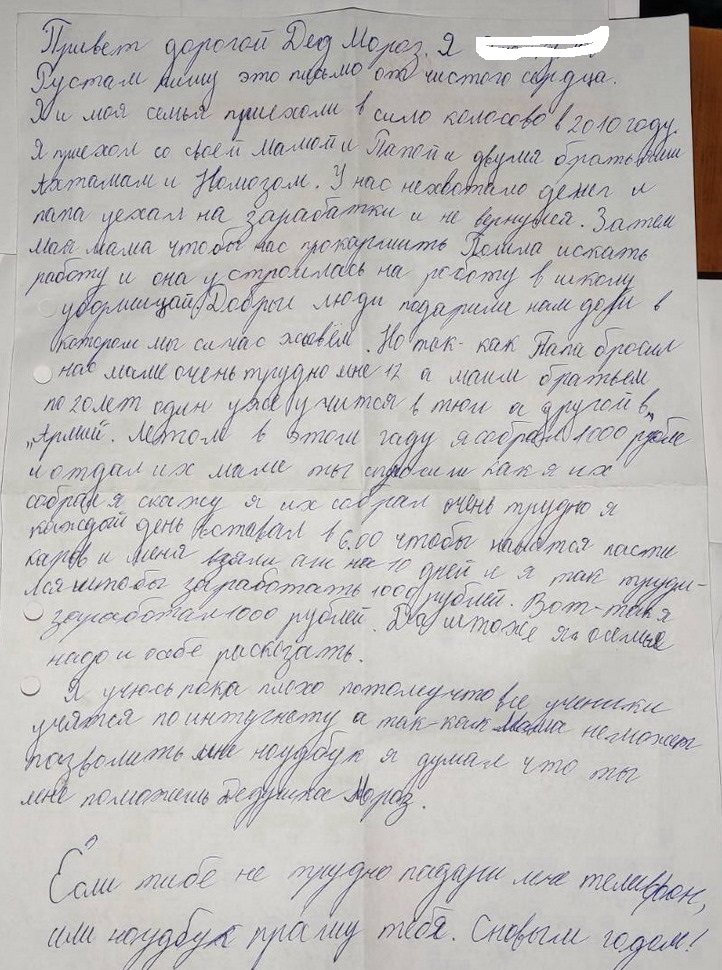 Привет дорогой Дед Мороз. Я
Рустам пишу это письмо от чистого сердца.
Я и моя семья приехоли в сило колосово в 2010 году.
Я приехол со своей мамой и Папой и двумя братьями
Ахтамам и Номозом. У нас нехватало денег и
папа уехал на зарабатки и не вернулся. Затем
май мама чтобы нас прокармить Пошла искать
работу и она устроилась на роботу в школу
уборщицай. Добрыи люди подарили нам дом в
котером мы сичас живём. Но так-как Папа бросил
нас маме очень трудно мне 12 а маим братьем
по 20 лет один уже учится в тюи а другой в
"Армий. Летом в этом гаду я собрал 1000 рубле
и отдал их маме ты спросиш как я их
собрал я скажу я их собрал очень трудно я
каждый день вставал в 6.00 чтобы пасти
каров и меня взяли аш на 10 дней и я так труди-
лся штобы заработать 1000 рублей. Вот-так я
заработал 1000 рублей. Да што же я о семье
надо и о себе расказать.
Я учюсь пока плохо потомучто все ученики
учятся по интугнету а так-как Мама неможет
пазволить мне ноудбук я думал что ты
мне поможешь Дедушка Мороз.
Если тибе не трудно падари мне телифон,
или ноудбук прашу тебя. Сновым годом!